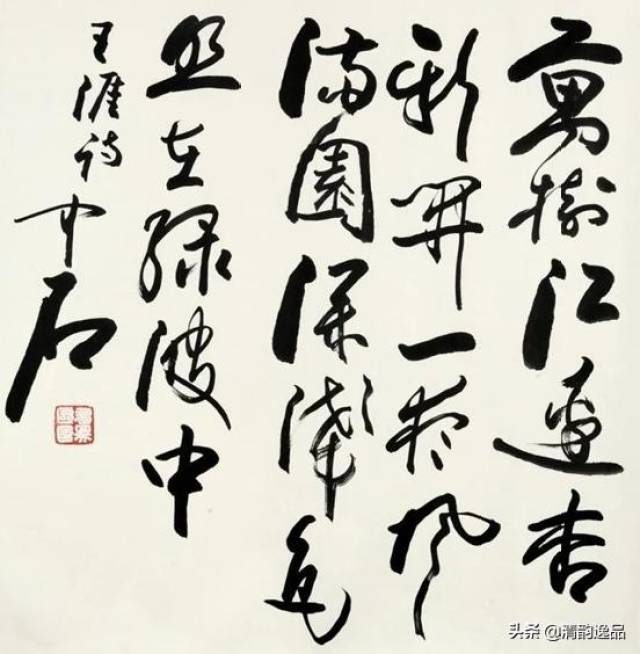 萬樹江邊杏
新開一夜風
滿園深淺色
照在緑波中
王涯詩中石
头条 @清韵逸品